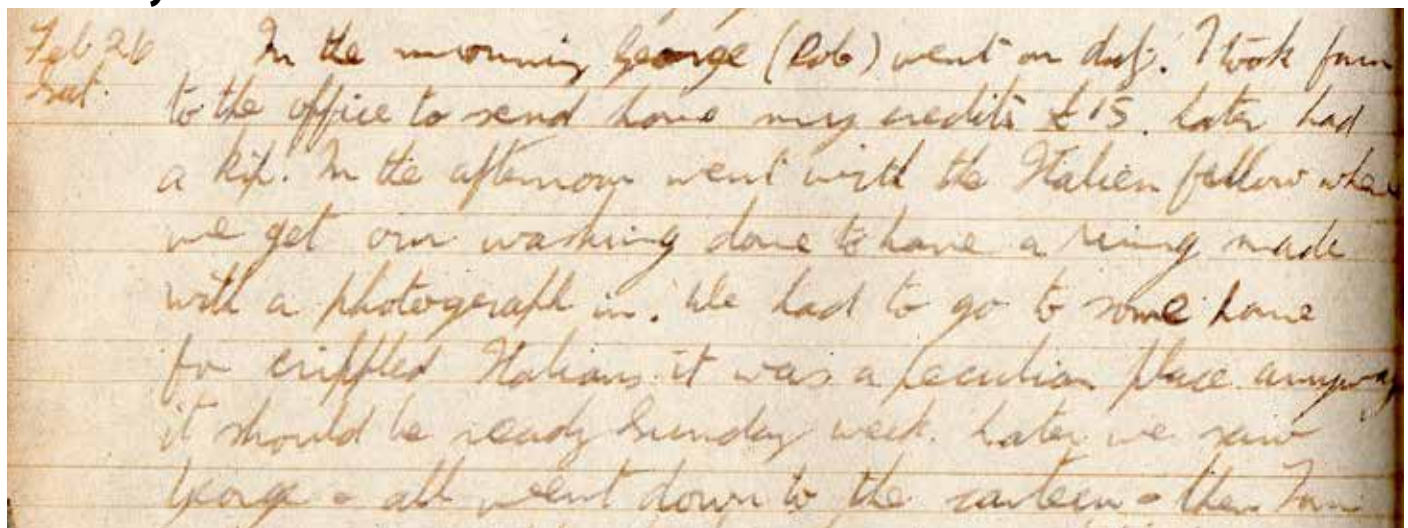 Feb 26 In the morning George (Rob) went on duty. I took form
Sat. to the office to send home my credits £15. Later had
a kip. In the afternoon went with the Italien fellow where
we get our washing done to have a ring made
with a photograph in. We had to go to some home
for crippled Italians it was a peculiar place anyway
it should be ready Sunday week. Later we saw
George - all went down to the canteen - then